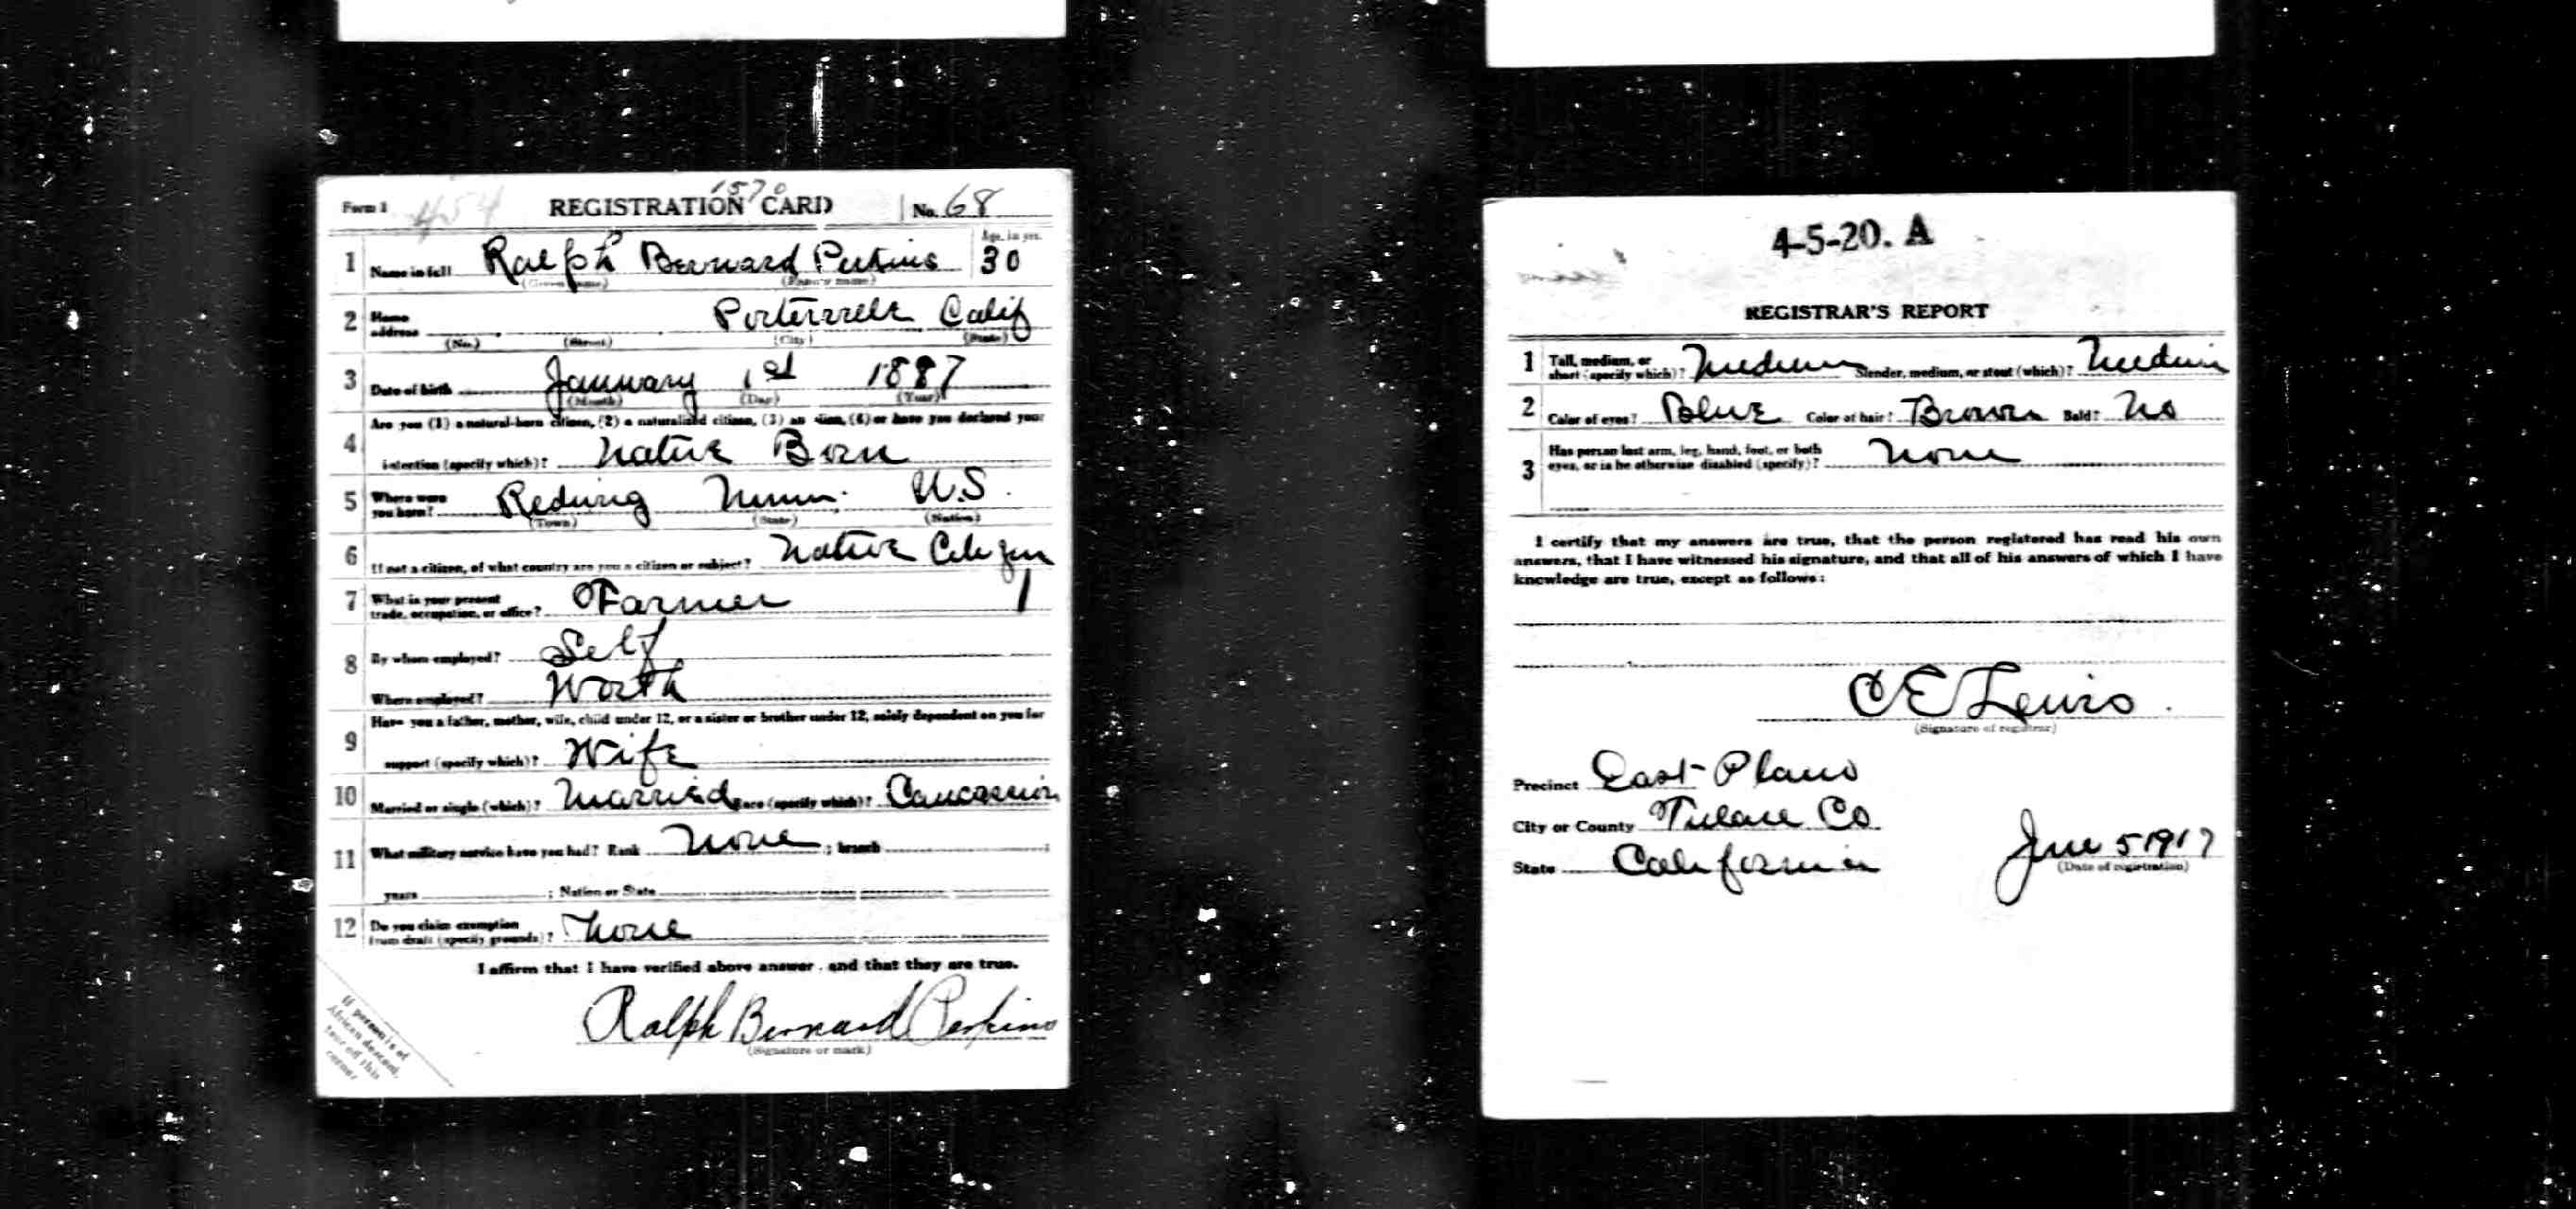 Form 1 454 REGISTRATION CARD 1570 No. 68
1 Name in full Ralph Bernard Perkins Age, in yrs. 30
(Given name) (Family name)
2 Home address Porterville Calif
(No.) (Street) (City) (State)
3 Date of birth January 1st 1887
(Month) (Day) (Year)
4 Are you (1) a natural-born citizen, (2) a naturalized citizen, (3) an alien, (4) or have you declared your
intention (specify which)? Native Born
5 Where were you born? Redwing Minn. U.S.
(Town) (State) (Nation)
6 If not a citizen, of what country are you a citizen or subject? Native Citizen
7 What is your present trade, occupation, or office? Farmer 1
8 By whom employed? Self
Where employed? Worth
9 Have you a father, mother, wife, child under 12, or a sister or brother under 12, solely dependent on you for
support (specify which)? Wife
10 Married or single (which)? Married Race (specify which)? Caucasian
11 What military service have you had? Rank None ; branch ;
years ; Nation or State
12 Do you claim exemption from draft (specify grounds)? None
I affirm that I have verified above answers and that they are true.
Ralph Bernard Perkins
(Signature or mark)
If person is of
African descent,
tear off this
corner
4-5-20. A
REGISTRAR'S REPORT
1 Tall, medium, or short (specify which)? Medium Slender, medium, or stout (which)? Medium
2 Color of eyes? Blue Color of hair? Brown Bald? No
3 Has person lost arm, leg, hand, foot, or both eyes, or is he otherwise disabled (specify)? None
I certify that my answers are true, that the person registered has read his own
answers, that I have witnessed his signature, and that all of his answers of which I have
knowledge are true, except as follows:
C E Lewis.
(Signature of registrar)
Precinct East Plano
City or County Tulare Co
State California June 5 1917
(Date of registration)